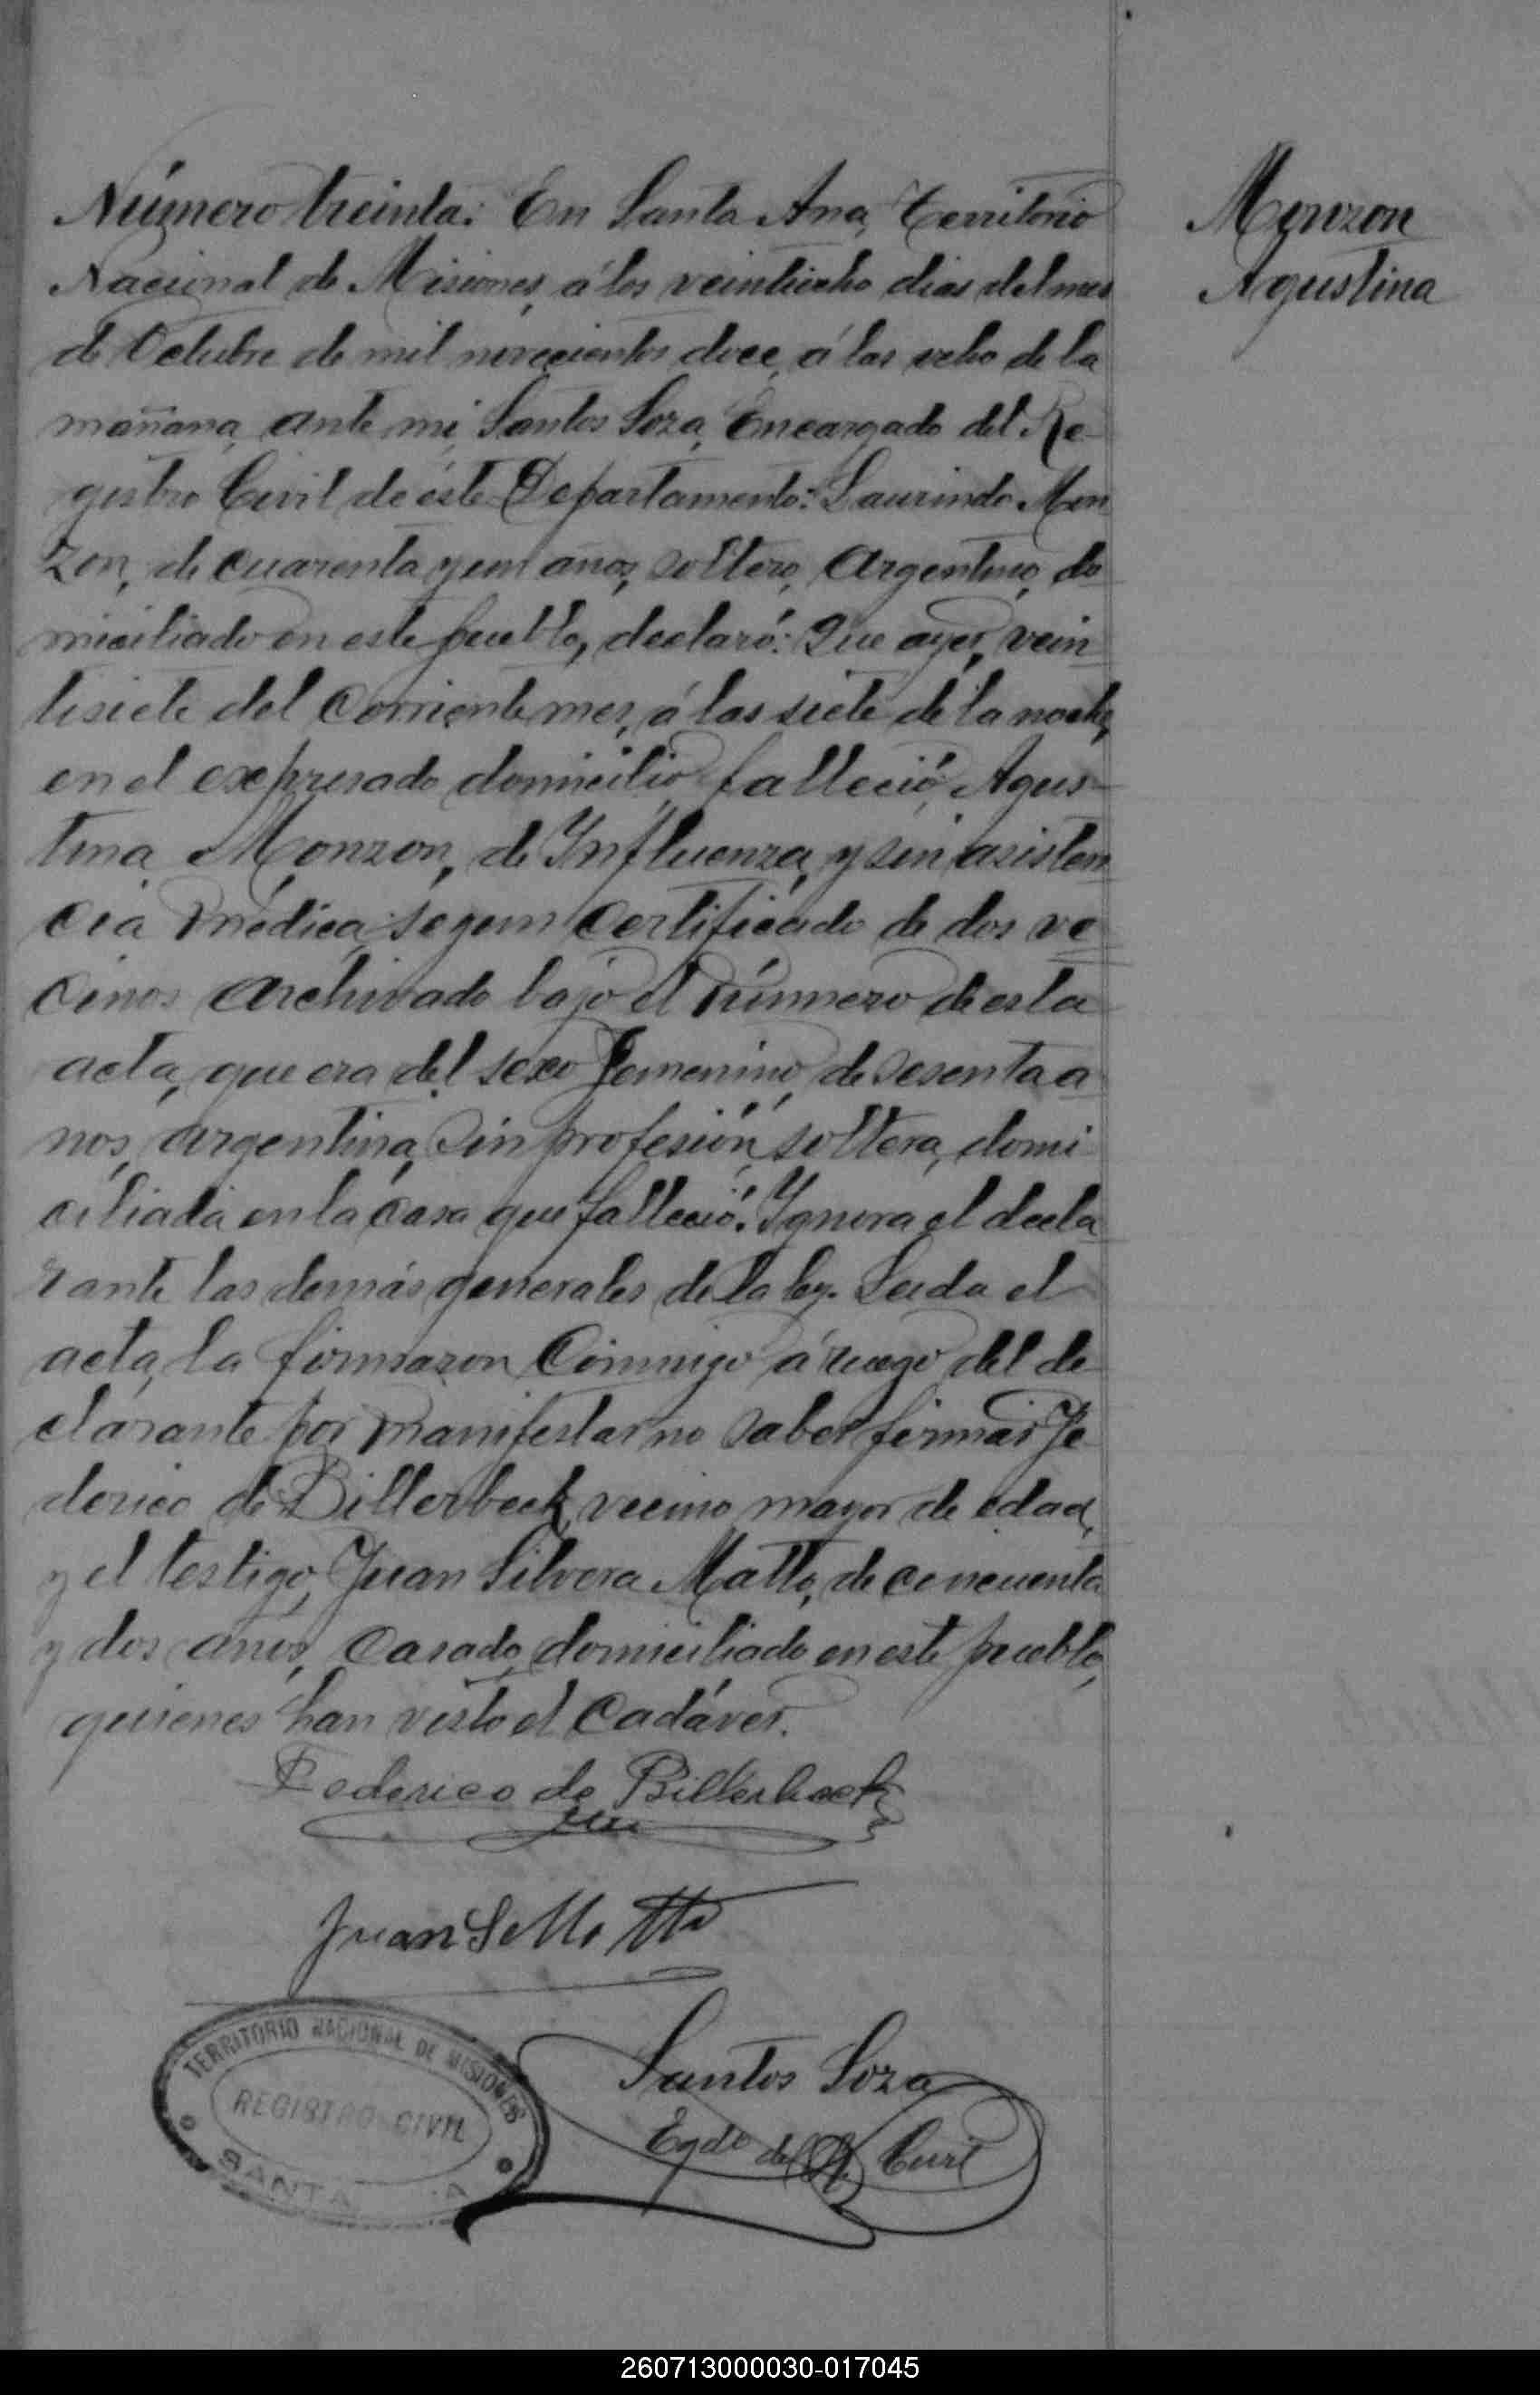 Número treinta: En Santa Ana, Territorio
Nacional de Misiones, á los veintiocho dias del mes
de Octubre de mil novecientos doce, á las ocho de la
mañana, ante mi, Santos Soza, Encargado del Re-
gistro Civil de éste Departamento: Laurindo Mon
zon, de cuarenta y un anos, soltero, Argentino, do
miciliado en este pueblo, declaró: Que ayer, vein
tisiete del corriente mes, á las siete de la noche,
en el expresado domicilio falleció, Agus-
tina Monzon, de Influenza, y sin asisten
cia médica, segun certificado de dos ve
cinos archivado bajo el número de esta
acta, que era del sexo femenino, de sesenta a
nos, argentina, sin profesión, soltera, domi
ciliada en la casa que falleció. Ignora el decla
rante las demás generales de la ley. Leida el
acta, la firmaron conmigo á ruego del de
clarante por manifestar no saber firmar Fe
derico de Billerbeck, vecino mayor de edad,
y el testigo, Juan Silvera Matto, de cincuenta
y dos anos, casado, domiciliado en este pueblo,
quienes han visto el cadáver.
Federico de Billerbeck
Juan S
Santos Soza
Egdo del R. Civil
TERRITORIO NACIONAL DE MISIONES
REGISTRO CIVIL
SANTA A
Monzon
Agustina
260713000030-017045